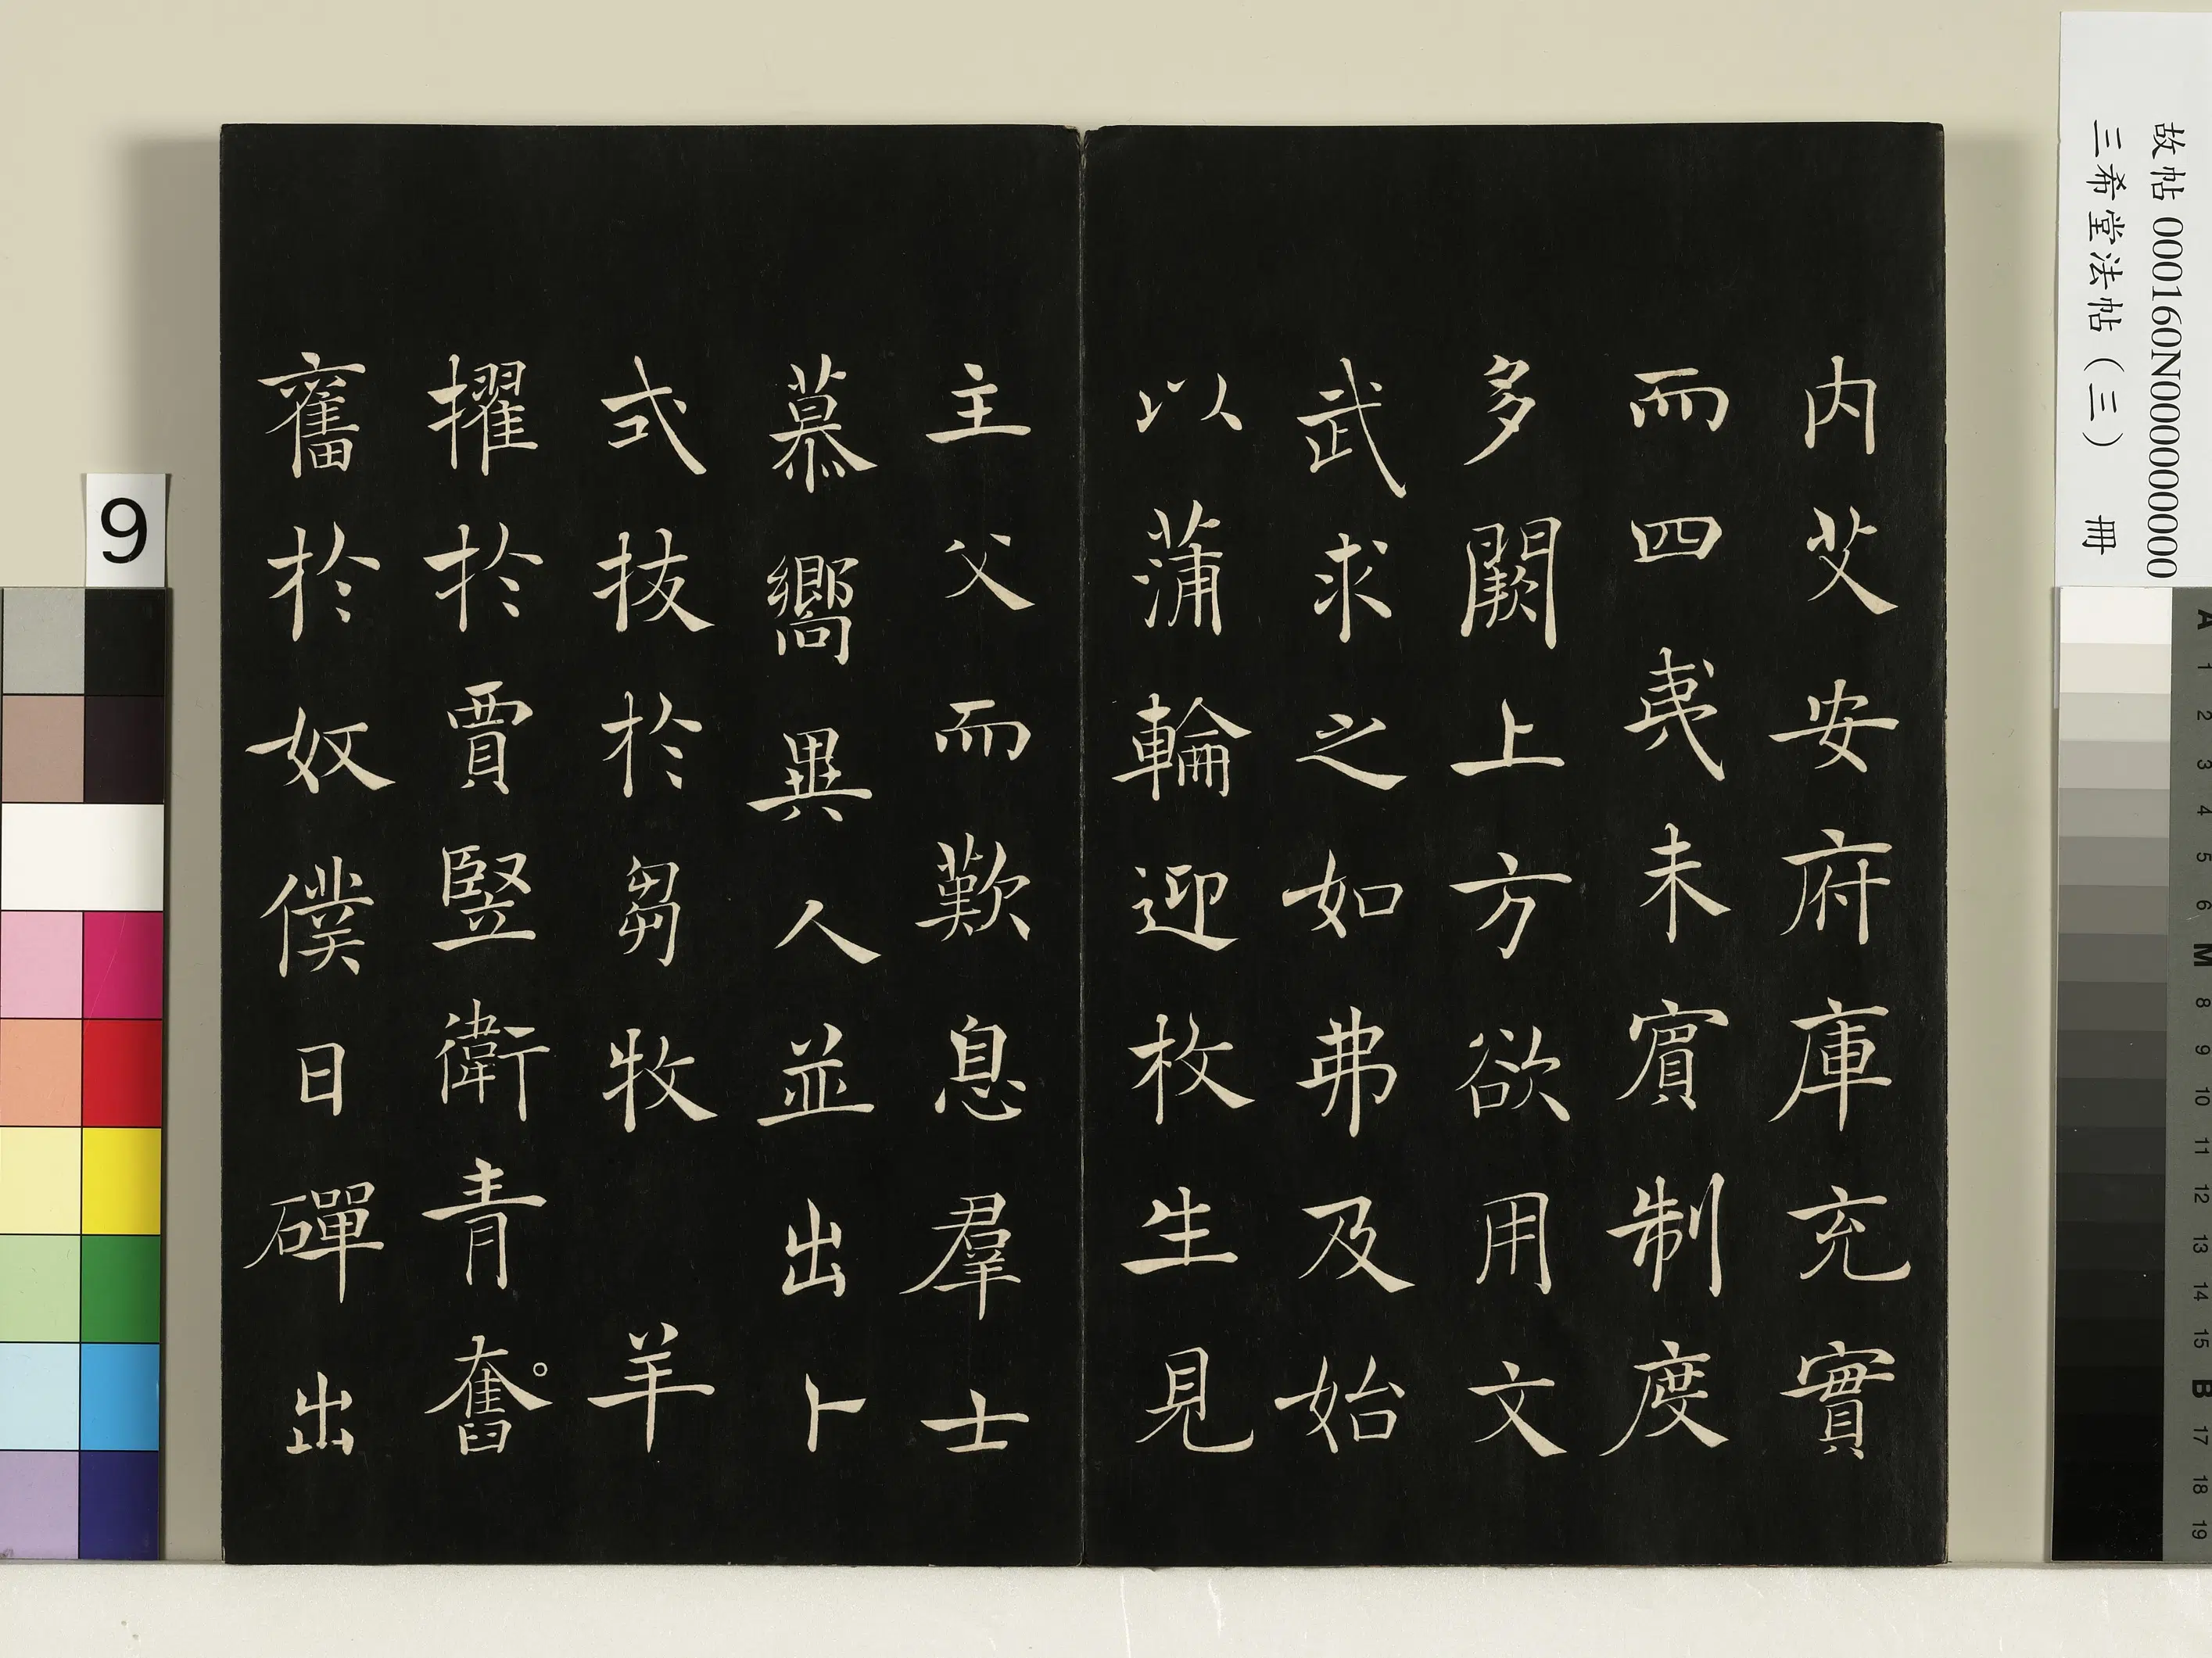 故帖 000160N000000000
三希堂法帖（三） 冊
内艾安府庫充實
而四夷未賓制度
多闕上方欲用文
武求之如弗及始
以蒲輪迎枚生見
主父而歎息羣士
慕嚮異人並出卜
式拔於芻牧 羊
擢於賈豎衛青奮
奮於奴僕日磾出
9
A 1 2 3 4 5 6 M 8 9 10 11 12 13 14 15 B 17 18 19